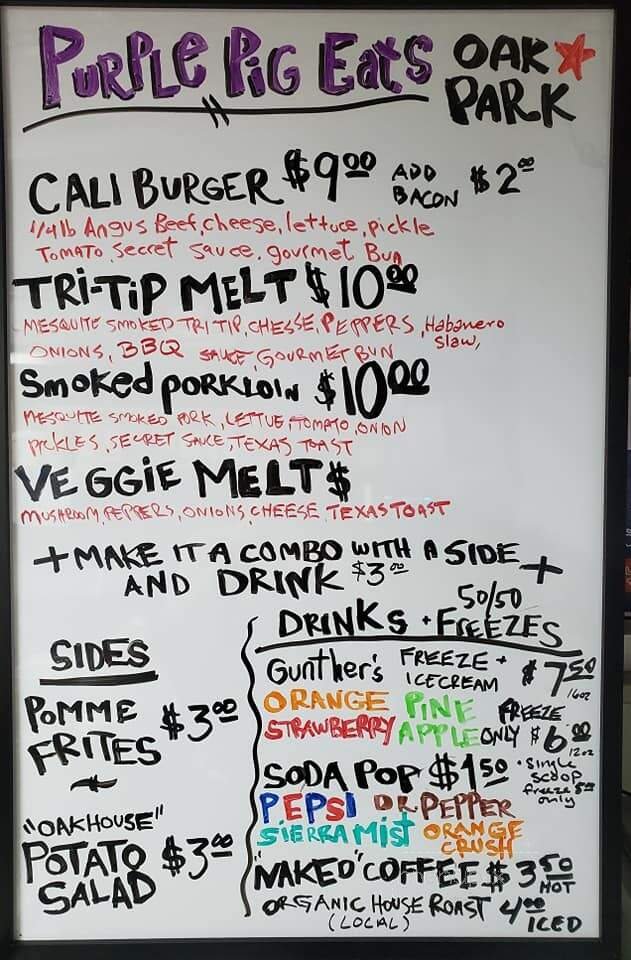 PURPLE PIG Eats OAK PARK
CALI BURGER $9.00 ADD BACON $2.00
1/4 lb Angus Beef, cheese, lettuce, pickle
TOMATO, Secret Sauce, gourmet Bun
TRI-TIP MELT $10.00
MESQUITE SMOKED TRI TIP, CHESSE, PEPPERS, Habanero Slaw,
ONIONS, BBQ SAUCE, GOURMET BUN
Smoked PORKLOIN $10.00
MESQUITE SMOKED PORK, LETTUE, TOMATO, ONION
PICKLES, SECRET SAUCE, TEXAS TOAST
VEGGIE MELT $
MUSHROOM, PEPPERS, ONIONS, CHEESE, TEXAS TOAST
+ MAKE IT A COMBO WITH A SIDE +
AND DRINK $3.00
SIDES
POMME FRITES $3.00
"OAKHOUSE"
POTATO SALAD $3.00
50/50
DRINKS + FREEZES
Gunther's FREEZE + ICECREAM $7.50 16oz
ORANGE PINE APPLE
STRAWBERRY
FREEZE ONLY $6.00 12oz
• Single scoop freeze only
SODA POP $1.50
PEPSI DR. PEPPER
SIERRA MIST ORANGE CRUSH
"NAKED" COFFEE $3.50 HOT
ORGANIC HOUSE ROAST 4.00 ICED
(LOCAL)